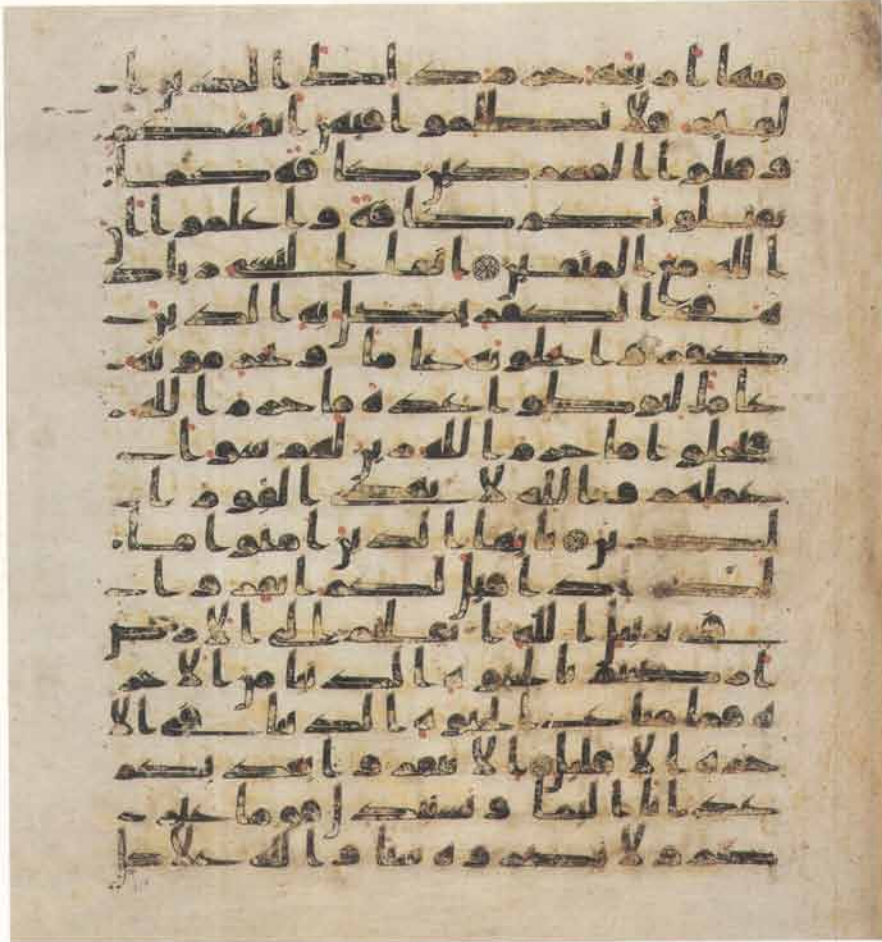 منها اربعة حرم ذلك الدين ا
لقيم فلا تظلموا فيهن انفسكم
وقتلوا المشركين كافة كما
يقتلونكم كافة واعلموا ان
الله مع المتقين ۝ انما النسى زياد
ة فى الكفر يضل به الذين
كفروا يحلونه عاما ويحرمونه
عاما ليوطوا عدة ما حرم الله
فيحلوا ما حرم الله زين لهم سو ا
عملهم والله لا يهدى القوم ا
لكفرين ۝ يايها الذين امنوا ما
لكم اذا قيل لكم انفروا
فى سبيل الله اثاقلتم الى الارض
ارضيتم بالحيوة الدنيا من الاخر
ة فما متع الحيوة الدنيا فى الا
خرة الا قليل ۝ الا تنفروا يعذبكم
عذابا اليما ويستبدل قوما غير
كم ولا تضروه شيا والله على كل